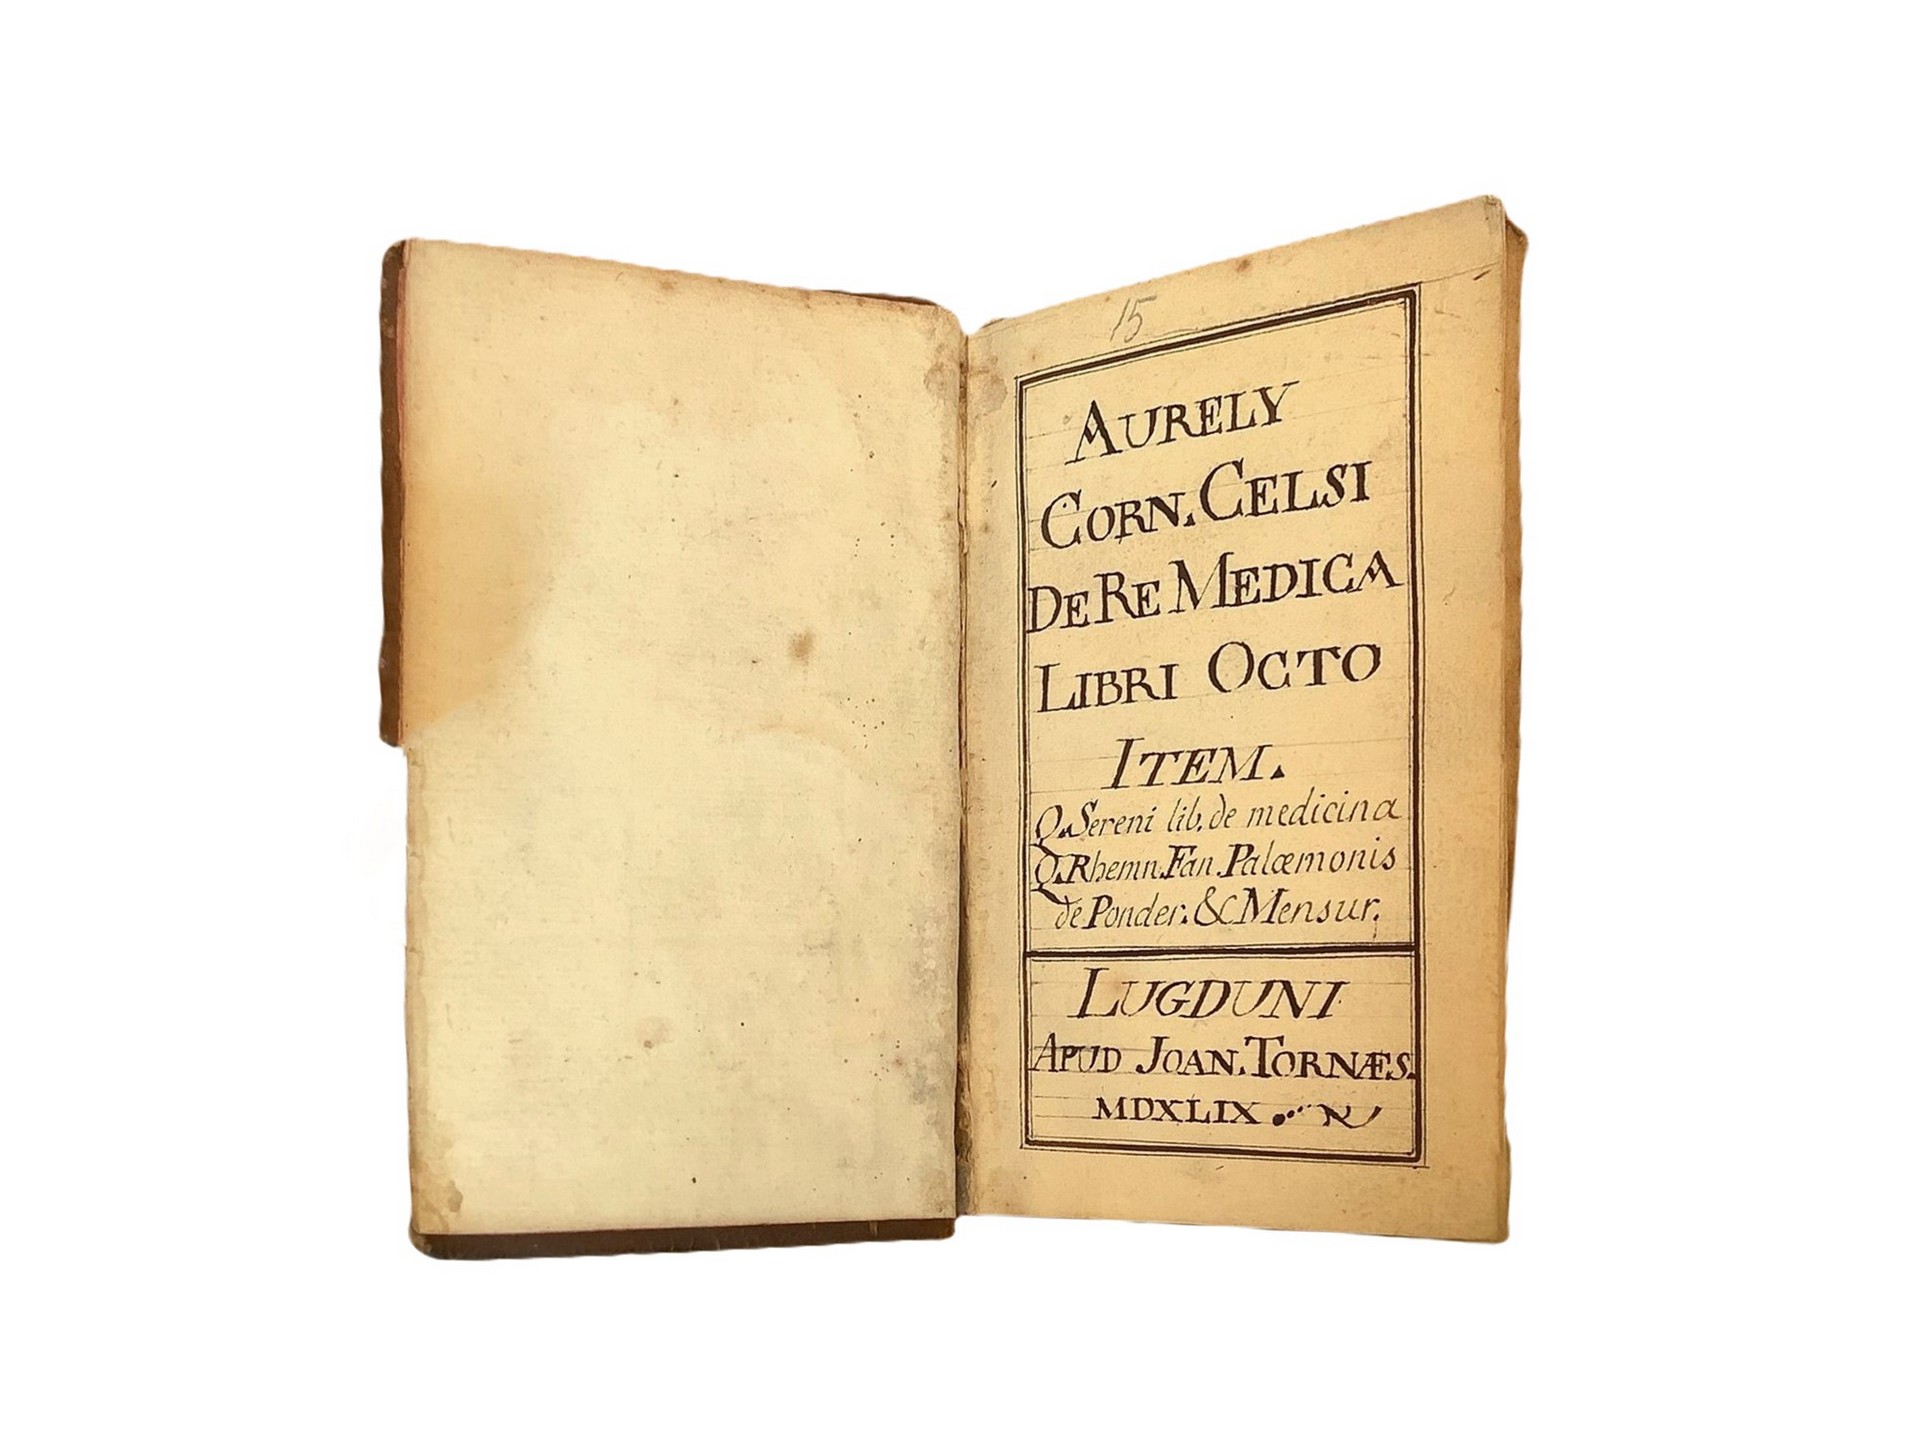 15
AURELY
CORN. CELSI
DE RE MEDICA
LIBRI OCTO
ITEM.
Q. Sereni lib. de medicina
Q. Rhemn. Fan. Palæmonis
de Ponder. & Mensur.
LUGDUNI
APUD JOAN. TORNÆS.
MDXLIX